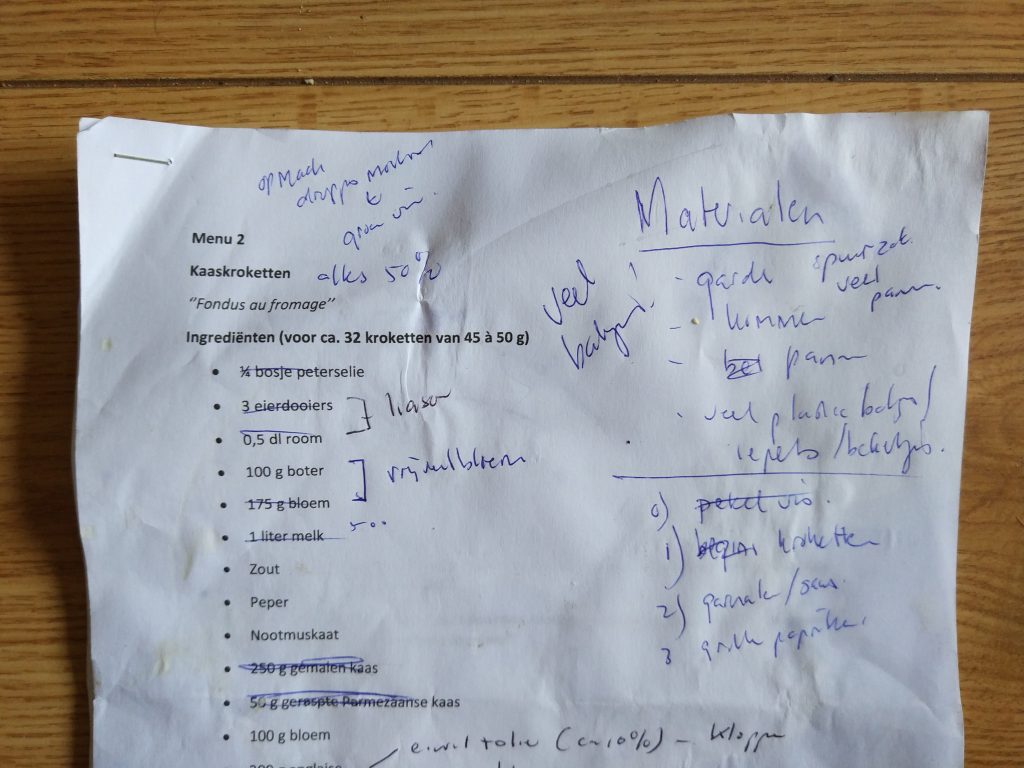 opmaak
druppo
groen vis.
Menu 2
Kaaskroketten alles 50%
"Fondus au fromage"
Ingrediënten (voor ca. 32 kroketten van 45 à 50 g)
¼ bosje peterselie
3 eierdooiers
liason
0,5 dl room
100 g boter
175 g bloem
1 liter melk 500
Zout
Peper
Nootmuskaat
250 g gemalen kaas
50 g geraspte Parmezaanse kaas
100 g bloem
eiwit (ca 10%) - kloppen
Materialen
veel
- garde spuitzak
veel
pann.
- kommen
- pann
- veel plastic bakjes/
lepels/bakjes.
0) pekel vis.
1) kroketten
2) garnale/saus
3 grille paprika.